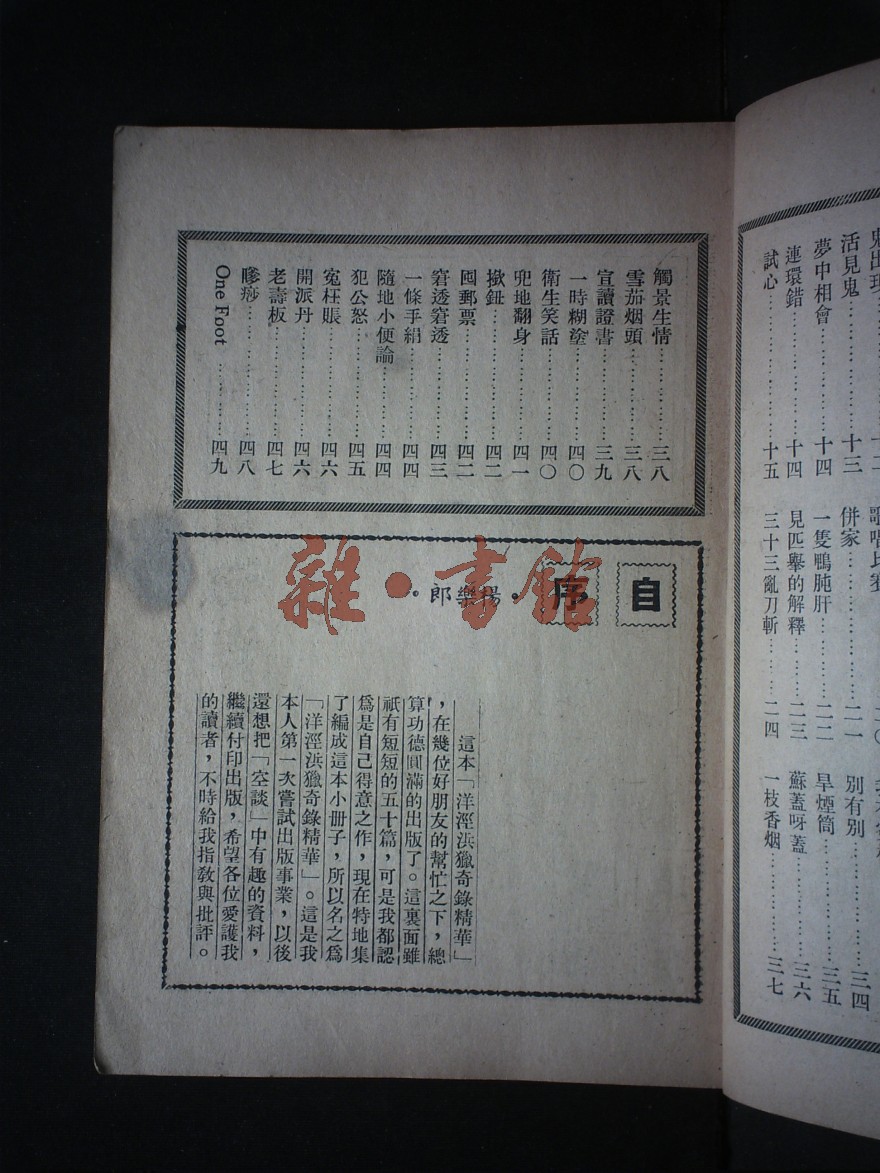 活見鬼……十三
夢中相會……十四
連環錯……十四
試心……十五
併家……二一
一隻鴨肫肝……二二
見匹舉的解釋……二三
三十三亂刀斬……二四
別有別……三四
旱煙筒……三五
蘇蓋呀蓋……三六
一枝香烟……三七
觸景生情……三八
雪茄烟頭……三八
宣讀證書……三九
一時糊塗……四〇
衛生笑話……四〇
兜地翻身……四一
撳鈕……四二
囤郵票……四二
窘透窘透……四三
一條手絹……四四
隨地小便論……四四
犯公怒……四五
寃枉賬……四六
開派丹……四六
老壽板……四七
嘇痧……四八
One Foot……四九
自序
•楊樂郎•
這本「洋涇浜獵奇錄精華」
，在幾位好朋友的幫忙之下，總
算功德圓滿的出版了。這裏面雖
祇有短短的五十篇，可是我都認
爲是自己得意之作，現在特地集
了編成這本小册子，所以名之爲
「洋涇浜獵奇錄精華」。這是我
本人第一次嘗試出版事業，以後
還想把「空談」中有趣的資料，
繼續付印出版，希望各位愛護我
的讀者，不時給我指教與批評。
雜•書館